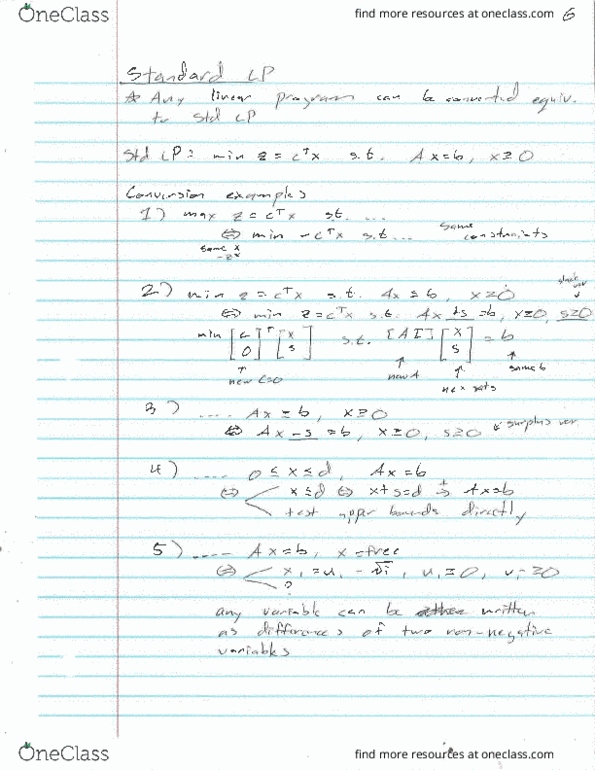 OneClass
find more resources at oneclass.com
6
Standard LP
* Any linear program can be converted equiv.
to std LP
Std LP: min z = cᵀx s.t. Ax = b, x ≥ 0
Conversion examples
1) max z = cᵀx s.t. ...
⇔ min -cᵀx s.t... same constraints
same x
-z
2) min z = cᵀx s.t. Ax ≤ b, x ≥ 0
slack var
⇔ min z = cᵀx s.t. Ax + s = b, x ≥ 0, s ≥ 0
min [c 0]ᵀ [x s] s.t. [A I] [x s] = b
new c=0 new A same b
3) .... Ax ≥ b, x ≥ 0
⇔ Ax - s = b, x ≥ 0, s ≥ 0 surplus var.
4) .... 0 ≤ x ≤ d, Ax = b
⇔ x ≤ d ⇔ x + s = d + Ax = b
test upper bounds directly
5) .... Ax = b, x = free
⇔ xᵢ = uᵢ - vᵢ, uᵢ ≥ 0, vᵢ ≥ 0
?
any variable can be written
as differences of two non-negative
variables
OneClass
find more resources at oneclass.com